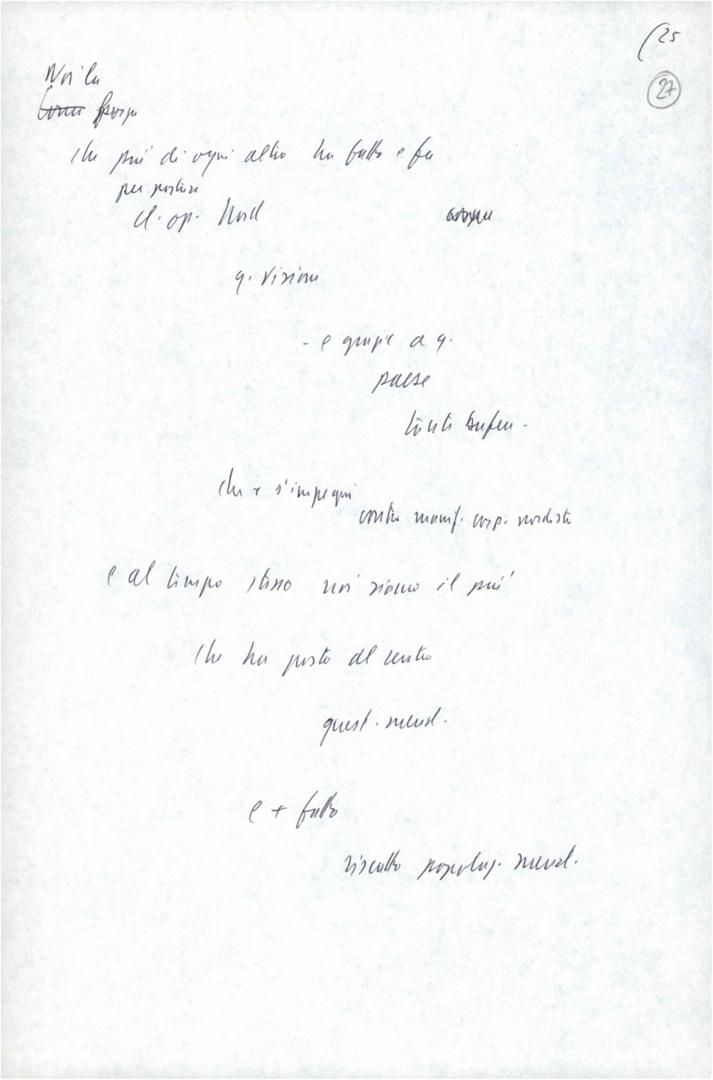 (25
27
Noi la
forza
che più di ogni altro ha fatto e fa
per portare
cl. op. Nord
q. visione
- e grazie a q.
paese
che + s'impegni
contro manif. corp. nordiste
e al tempo stesso noi siamo il più
che ha posto al centro
quest. merid.
e + fatto
riscatto popolaz. merid.